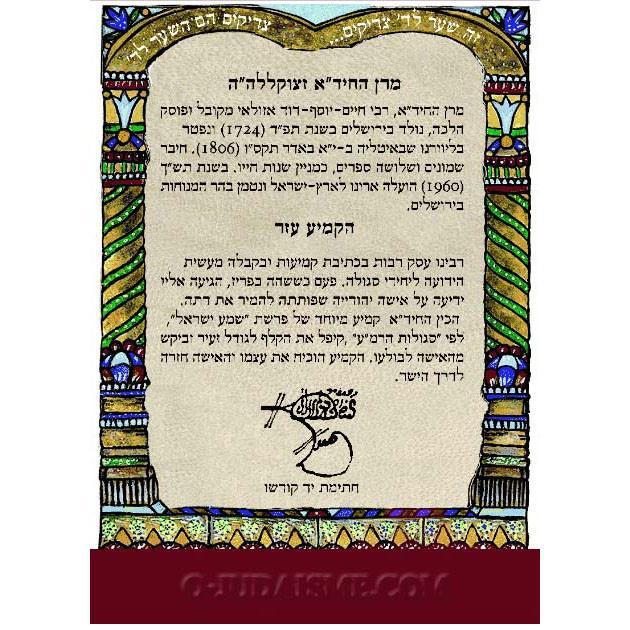 זה שער לד' צדיקים...
צדיקים הם השער לד'
מרן החיד"א זצוקללה"ה
מרן החיד"א, רבי חיים-יוסף-דוד אזולאי מקובל ופוסק
הלכה, נולד בירושלים בשנת תפ"ד (1724) ונפטר
בליוורנו שבאיטליה ב-י"א באדר תקס"ו (1806). חיבר
שמונים ושלושה ספרים, כמניין שנות חייו. בשנת תש"ך
(1960) הועלה ארונו לארץ-ישראל ונטמן בהר המנוחות
בירושלים.
הקמיע עזר
רבינו עסק רבות בכתיבת קמיעות ובקבלה מעשית
הידועה ליחידי סגולה. פעם כששהה בפריז, הגיעה אליו
ידיעה על אישה יהודייה שפותתה להמיר את דתה.
הכין החיד"א קמיע מיוחד של פרשת "שמע ישראל",
לפי "סגולות הרמ"ע", קיפל את הקלף לגודל זעיר וביקש
מהאישה לבולעו. הקמיע הוכיח את עצמו והאישה חזרה
לדרך הישר.
חתימת יד קודשו
O-JUDAISME.COM